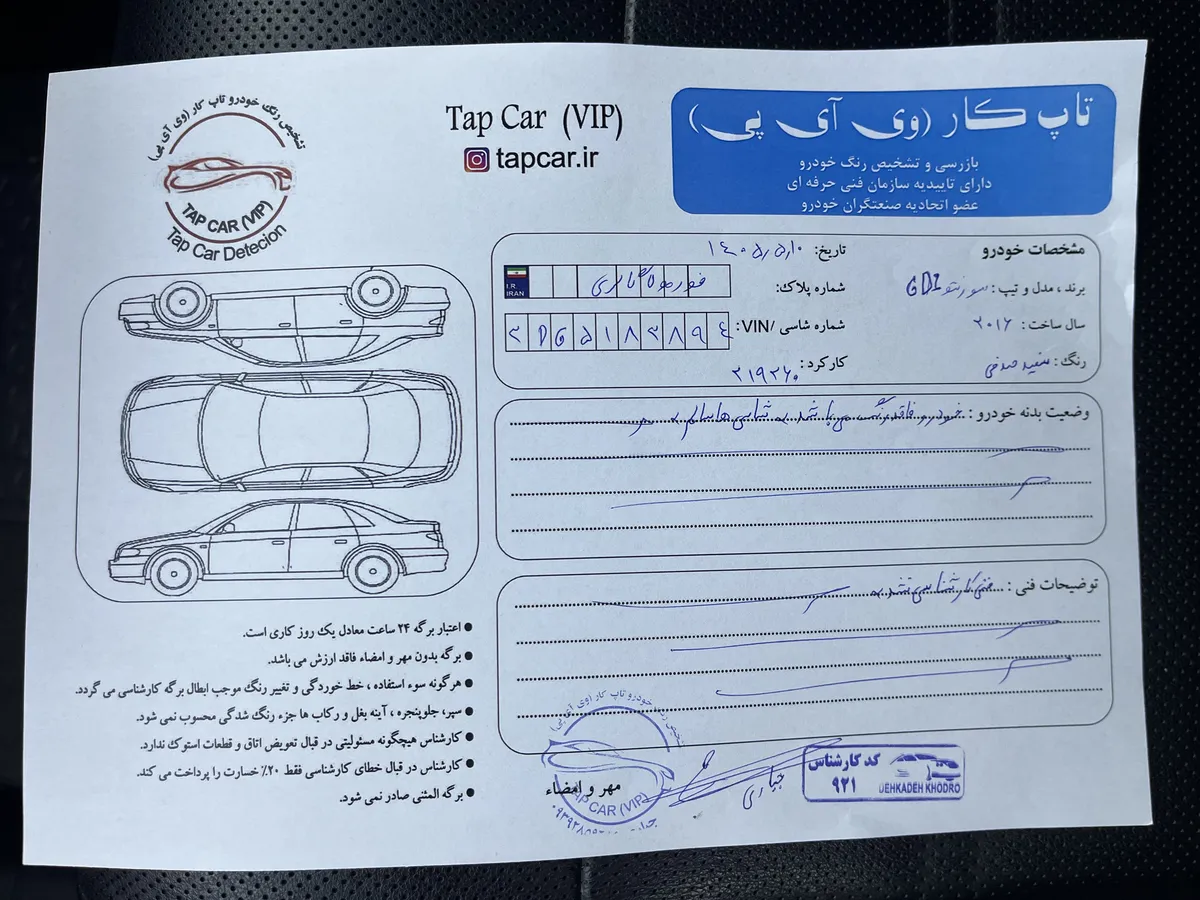 تشخیص رنگ خودرو تاپ کار (وی آی پی)
TAP CAR (VIP)
Tap Car Detecion
Tap Car (VIP)
tapcar.ir
تاپ کار (وی آی پی)
بازرسی و تشخیص رنگ خودرو
دارای تاییدیه سازمان فنی حرفه ای
عضو اتحادیه صنعتگران خودرو
مشخصات خودرو
تاریخ: ۱۴۰۵/۵/۱۰
برند، مدل و تیپ: سورنتو GDI
شماره پلاک:
I.R IRAN
سال ساخت: ۲۰۱۶
شماره شاسی /VIN:
رنگ: سفید صدفی
کارکرد: ۲۱۹۲۶۰
وضعیت بدنه خودرو: خودرو فاقد رنگ می باشد شاسی ها سالم
توضیحات فنی: فنی کارشناسی نشد
● اعتبار برگه ۲۴ ساعت معادل یک روز کاری است.
● برگه بدون مهر و امضاء فاقد ارزش می باشد.
● هرگونه سوء استفاده، خط خوردگی و تغییر رنگ موجب ابطال برگه کارشناسی می گردد.
● سپر، جلوپنجره، آینه بغل و رکاب ها جزء رنگ شدگی محسوب نمی شود.
● کارشناس هیچگونه مسئولیتی در قبال تعویض اتاق و قطعات استوک ندارد.
● کارشناس در قبال خطای کارشناسی فقط ۲۰٪ خسارت را پرداخت می کند.
● برگه المثنی صادر نمی شود.
تشخیص رنگ خودرو تاپ کار (وی آی پی)
مهر و امضاء
TAP CAR (VIP)
جباری
کد کارشناس
۹۲۱
DEHKADEH KHODRO